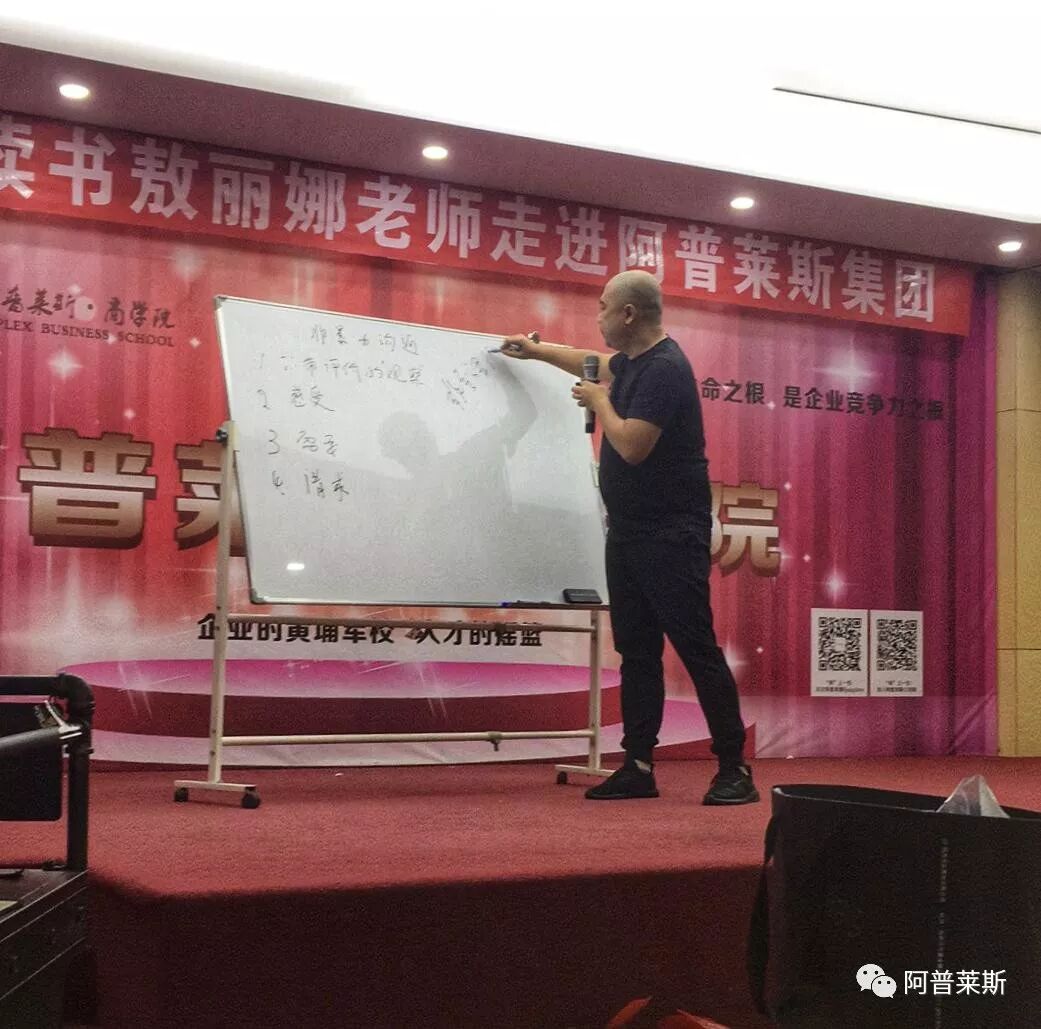 读书敖丽娜老师走进阿普莱斯集团
普莱斯·商学院
PLEX BUSINESS SCHOOL
命之根 是企业竞争力之
非暴力沟通
1 不带评价的观察
2 感受
3 需要
4 请求
普莱
院
企业的黄埔军校 人才的摇篮
阿普莱斯